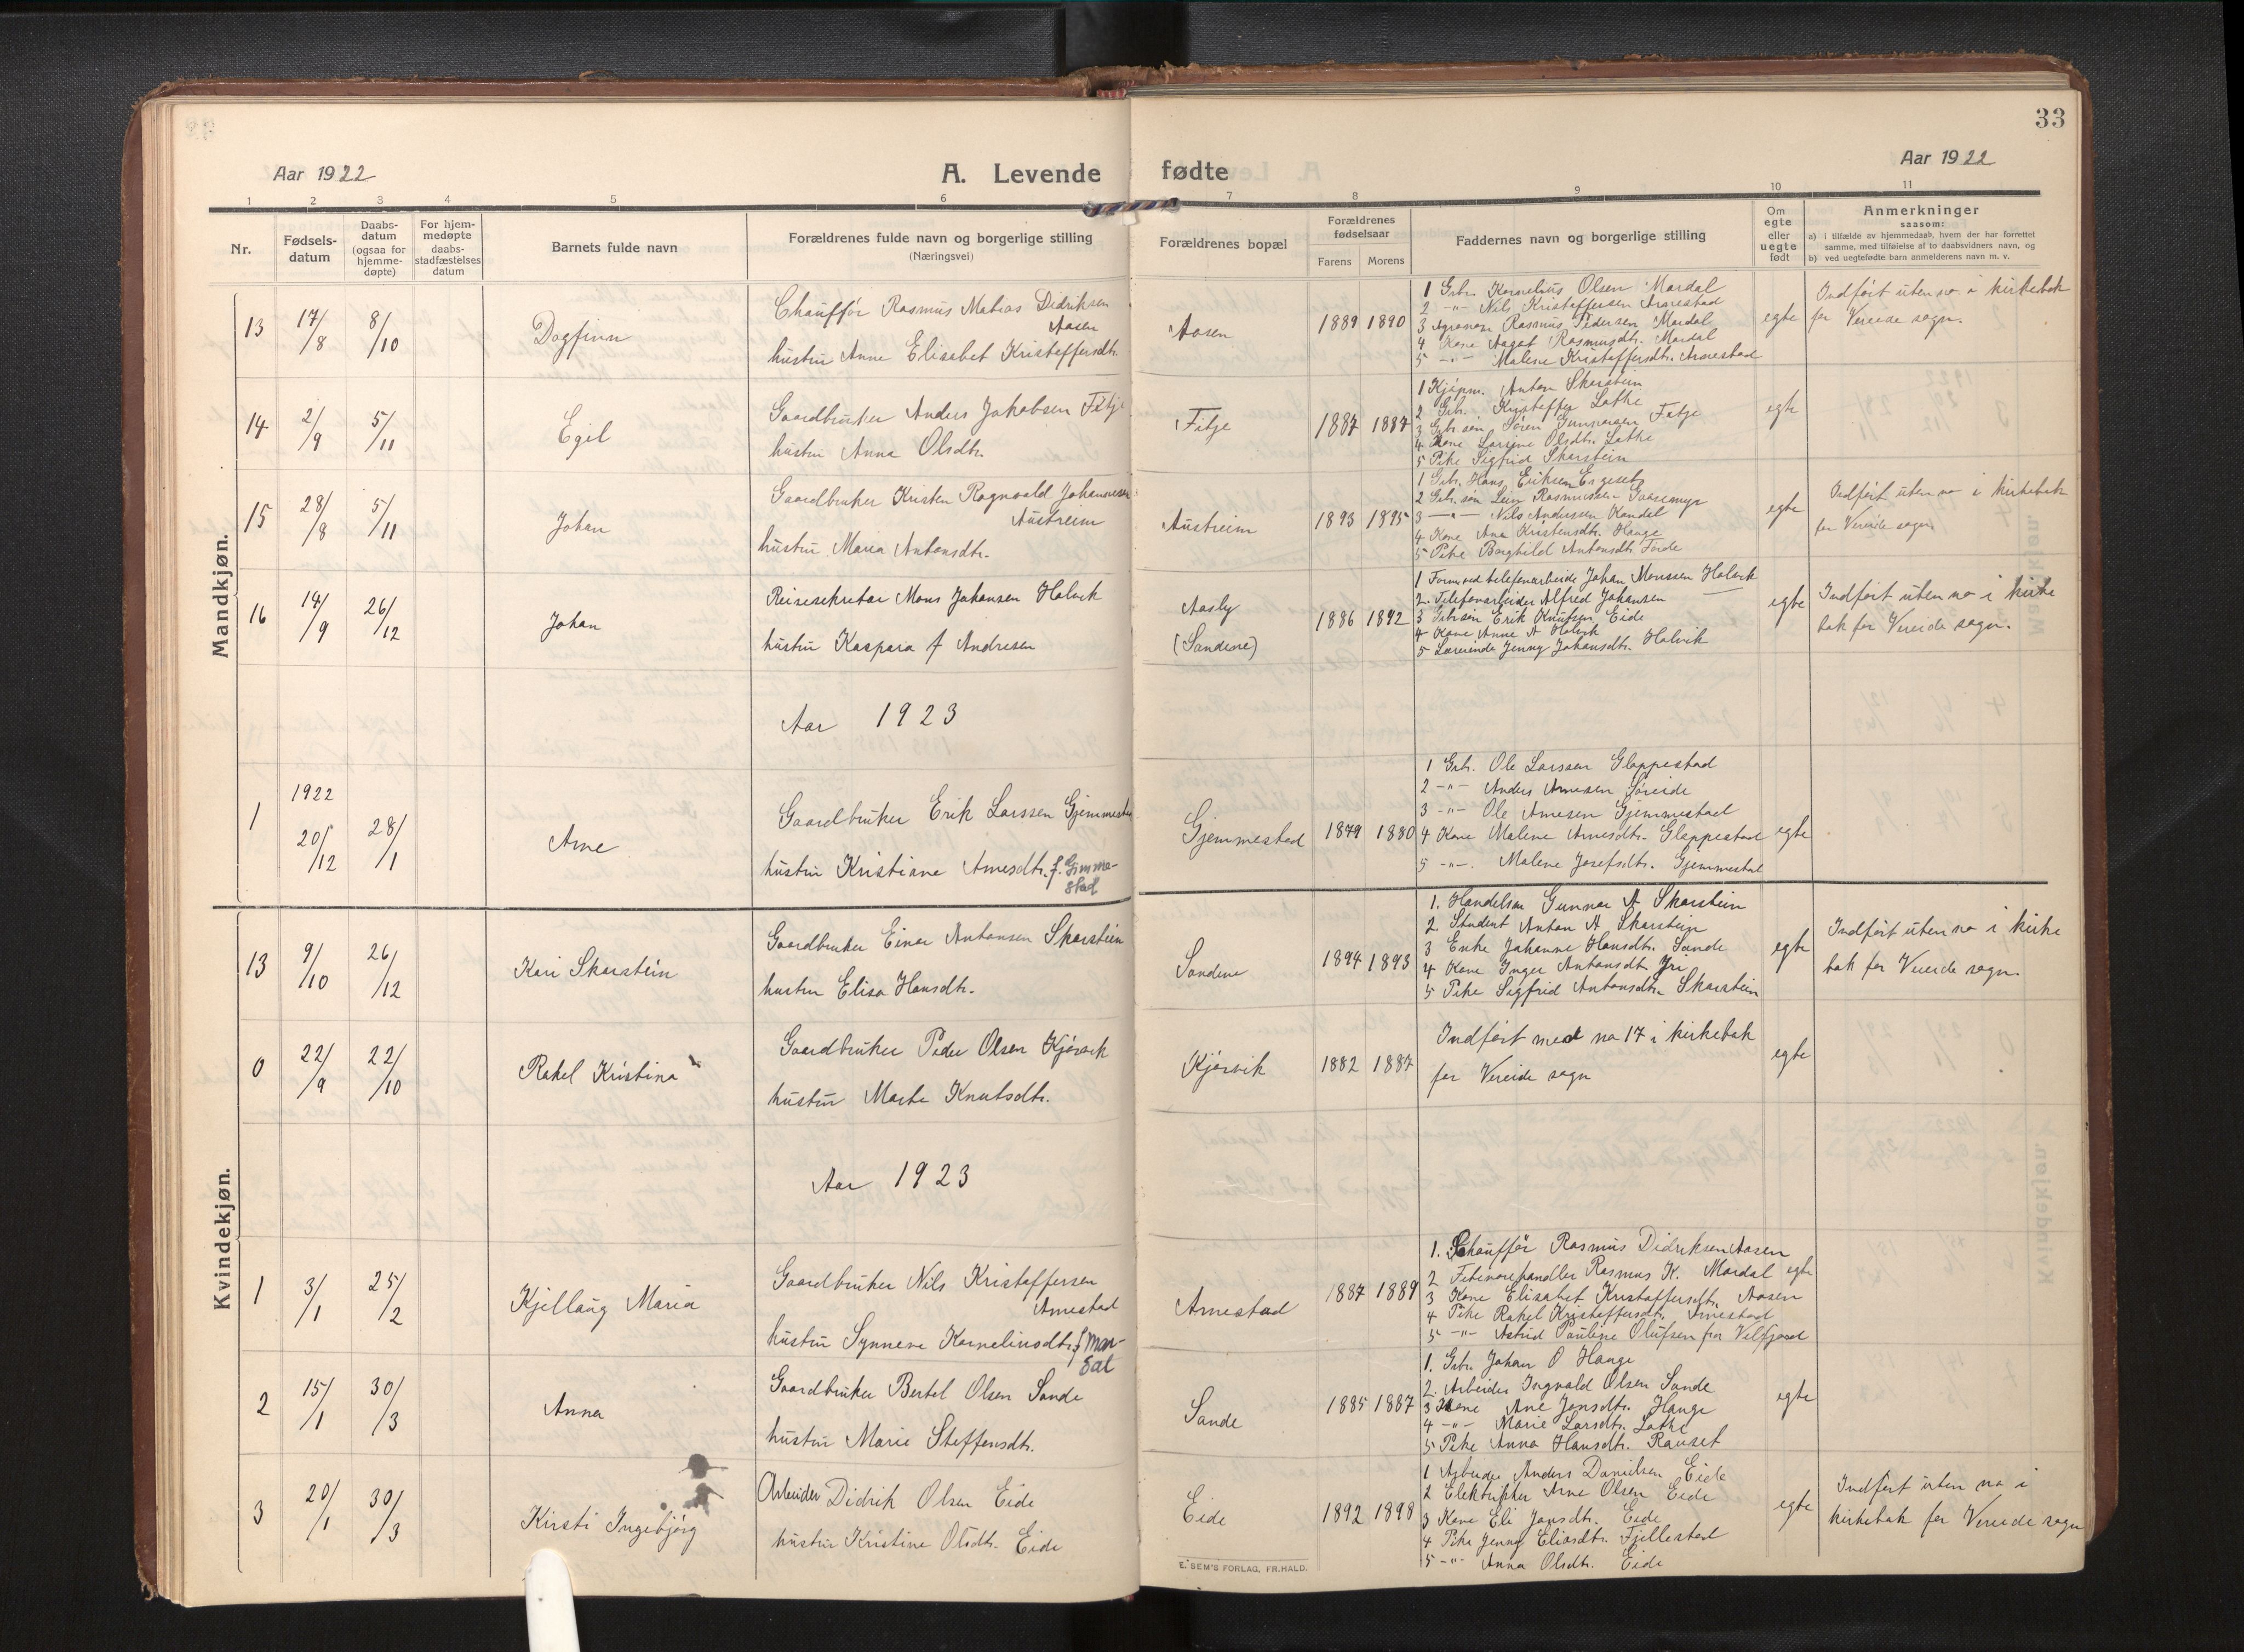 33
Aar 1922
A. Levende fødte
Aar 1922
1 2 3 4 5 6 7 8 9 10 11
Nr.
Fødsels-
datum
Daabs-
datum
(ogsaa for
hjemme-
døpte)
For hjem-
medøpte
daabs-
stadfæstelses
datum
Barnets fulde navn
Forældrenes fulde navn og borgerlige stilling
(Næringsvei)
Forældrenes bopæl
Forældrenes
fødselsaar
Farens Morens
Faddernes navn og borgerlige stilling
Om
egte
eller
uegte
født
Anmerkninger
saasom:
a) i tilfælde av hjemmedaab, hvem der har forrettet
samme, med tilføielse af to daabsvidners navn, og
b) ved uegtefødte barn anmelderens navn m. v.
Mandkjøn.
13 17/8 8/10 Dagfinn
Chauffør Rasmus Matias Didriksen
Aasen
hustru Anne Elisabet Kristoffersdtr.
Aasen 1889 1890
1 Grb. Kornelius Olsen Mardal
2 -"- Nils Kristoffersen Arnestad
3 Agronom Rasmus Pedersen Mardal
4 Kone Aagot Rasmusdtr. Mardal
5 -"- Malene Kristoffersdtr. Arnestad
egte
Indført uten no i kirkebok
for Vereide sogn.
14 2/9 5/11 Egil
Gaardbruker Anders Jakobsen Fitje
hustru Anna Olsdtr.
Fitje 1887 1887
1 Kjøpm. Anton Skarstein
2 Grb. Kristoffer Lothe
3 Grb.søn Søren Gunnarsen Fitje
4 Kone Larsine Olsdtr. Lothe
5 Pike Sigfrid Skarstein
egte
15 28/8 5/11 Johan
Gaardbruker Kristen Ragnvald Johannessen
Austreim
hustru Maria Antonsdtr.
Austreim 1893 1895
1 Grb. Hans Eriksen Engeset
2 Grb.søn Leiv Rasmussen
3 -"- Nils Andersen Kandal
4 Kone Ana Kristensdtr. Hauge
5 Pike Borghild Antonsdtr. Førde
egte
Indført uten no i kirkebok
for Vereide sogn.
16 14/9 26/12 Johan
Reisesekretær Mons Johansen Holvik
hustru Kaspara f Andresen
Aasly
(Sandene)
1886 1892
1 Form. ved telefonarbeide Johan Monssen Holvik
2. Telefonarbeider Alfred Johansen
3 Grb.søn Erik Knutsen Eide
4 Kone Anne A Holvik
5 Lærerinde Jenny Johansdtr. Holvik
egte
Indført uten no i kirke
bok for Vereide sogn.
Aar 1923
1 1922
20/12 28/1 Arne
Gaardbruker Erik Larssen Gjemmestad
hustru Kristiane Arnesdtr. f. Gimme-
stad
Gjemmestad 1879 1880
1 Grb. Ole Larssen Gloppestad
2 -"- Anders Arnesen Søreide
3 -"- Ole Arnesen Gjemmestad
4 Kone Malene Arnesdtr. Gloppestad
5 -"- Malene Josefsdtr. Gjemmestad
egte
Kvindekjøn.
13 9/10 26/12 Kari Skarstein
Gaardbruker Einar Antonsen Skarstein
hustru Elisa Hansdtr.
Sandene 1894 1893
1. Handelsm Gunnar A Skarstein
2. Student Anton A Skarstein
3 Enke Johanne Hansdtr. Sande
4 Kone Inger Antonsdtr Yri
5 Pike Sigfrid Antonsdtr. Skarstein
egte
Indført uten no i kirke
bok for Vereide sogn.
0 22/9 22/10 Rakel Kristina
Gaardbruker Peder Olsen Kjørvik
hustru Marte Knutsdtr.
Kjørvik 1882 1887
Indført med no 17 i kirkebok
for Vereide sogn
egte
Aar 1923
1 3/1 25/2 Kjellaug Maria
Gaardbruker Nils Kristoffersen
Arnestad
hustru Synneve Korneliusdtr. f Mar-
dal
Arnestad 1887 1889
1. Schauffør Rasmus Didriksen Aasen
2 Fetevarehandler Rasmus K. Mardal
3 Kone Elisabet Kristoffersdtr. Aasen
4 Pike Rakel Kristoffersdtr. Arnestad
5 -"- Astrid Pauline Olufsen fra Velfjord
egte
2 15/1 30/3 Anna
Gaardbruker Bertel Olsen Sande
hustru Marie Steffensdtr.
Sande 1885 1887
1. Grb. Johan O Hauge
2. Arbeider Ingvald Olsen Sande
3 Kone Ane Jonsdtr. Hauge
4 -"- Marie Larsdtr. Lothe
5 Pike Anna Hansdtr. Rauset
egte
3 20/1 30/3 Kirsti Ingebjørg
Arbeider Didrik Olsen Eide
hustru Kristine Olsdtr. Eide
Eide 1892 1898
1 Arbeider Anders Danielsen Eide
2 Elektriker Arne Olsen Eide
3 Kone Eli Jonsdtr. Eide
4 Pike Jenny Eliasdtr. Fjellestad
5 -"- Anna Olsdtr. Eide
egte
Indført uten no i
kirkebok for Vereide sogn
E. SEM'S FORLAG, FR.HALD.